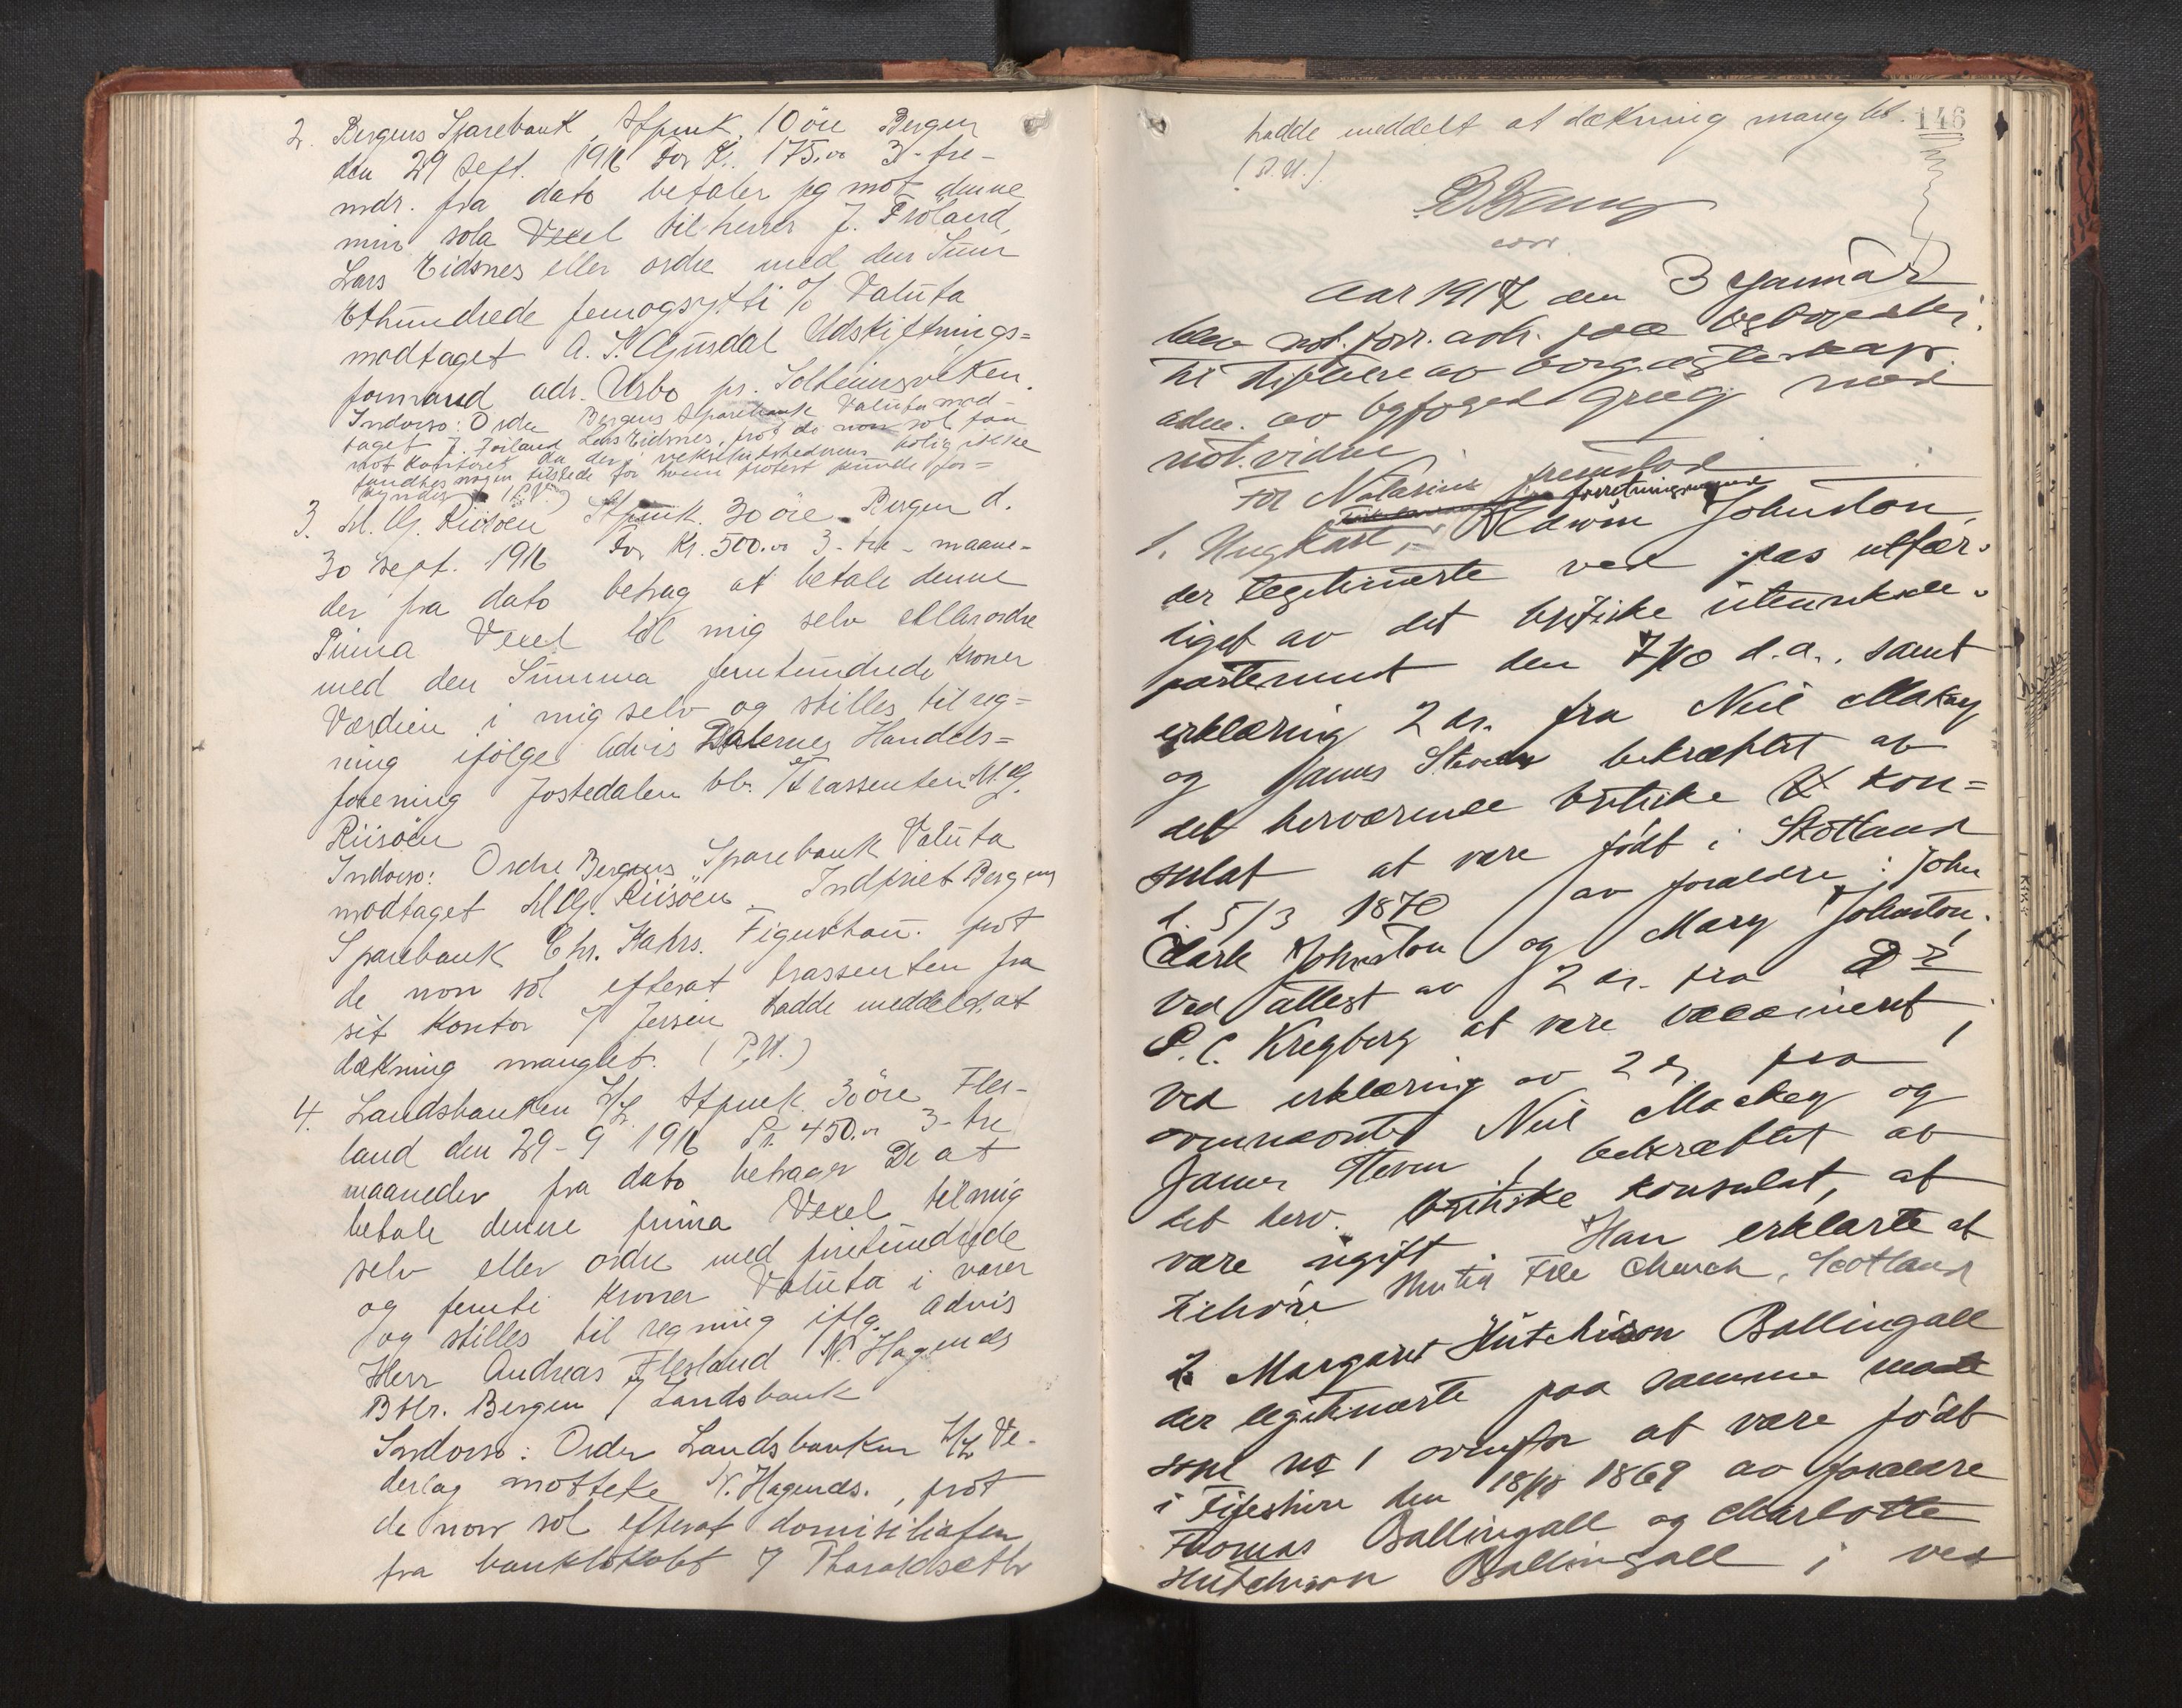 2. Bergens Sparebank, Stpmk. 10 öre Bergen
den 29 Sept. 1916 for Kr. 175.00 3-tre-
mdr. fra dato betaler jeg mot denne
min sola Vexel til herrer J. Fröland,
Lars Eidsnes eller ordre med den Sum
Ethundrede femogsytti o/o Valuta
modtaget A. S. Gjusdal Udskiftnings=
formand adr. Usbo pr. Solheimsviken.
Indorso: Ordre Bergens Sparebank Valuta mod-
taget J. Fröland Lars Eidsnes, prot de non sol paa
not kontoret da der i vekselutstederens bolig ikke
fandtes nogen tilstede for hvem protest kunde for=
kyndes (P.U.)
3. M. G. Riisöen Stpmk. 30 öre Bergen d.
30 Sept. 1916 for Kr. 500.00 3-tre-maane-
der fra dato behag at betale denne
Prima Vexel til mig selv eller ordre
med den Summa femhundrede Kroner
Værdien i mig selv og stilles til reg=
ning ifölge advis Dalernes Handels=
forening Jostedalen bb. /trassenten M. G.
Riisöen
Indorso: Ordre Bergens Sparebank Valuta
modtaget M. G. Riisöen. Indfriet Bergens
Sparebank Chr. Kahrs. prot
de non sol efterat trassenten fra
sit Kontor / Jersin hadde meddelt at
dækning manglet. (P.U.)
4. Landsbanken H/L Stpmk. 30 öre Fles-
land den 29-9 1916 Kr. 450.00 3-tre
maaneder fra dato behager De at
betale denne prima Vexel til mig
selv eller ordre med firehundrede
og femti Kroner Valuta i varer
og stilles til regning iflg. advis
Herr Andreas Flesland N. Hagenæs
Bblr. Bergen / Landsbank
Indorso: Order Landsbanken H/L Ve-
derlag motteke N. Hagenæs., prot
de non sol efterat domisiliaten
fra banklokalet / Tharaldsethr
146
hadde meddelt at dækning manglet.
(P.U.)
Aar 1917 den 3 Januar
blev not. forr. avh. paa byfogedkt.
til stiftelse av borg. egteskap
adm. av byfoged Grieg med
not. vidne
For Notarius fremstod
1. Ungkarl, forretningsmand Edwin Johnston,
der legitimerte ved pas utfær-
diget av det britiske utenriksde-
partement den 7/10 d.a., samt
erklæring 2 ds. fra Neil Makay
og James Steven bekræftet av
det herværende britiske kon=
sulat at være födt i Skotland
d. 5/3 1870 av forældre: John
Clark Johnston og Mary Johnston;
ved attest av 2 ds. fra Dr
P. C. Kregberg at være vaccineret;
ved erklæring av 2 ds. fra
ovennævnte Neil Mackay og
James Steven, bekræftet av
det herv. britiske konsulat, at
være ugift. Han erklærte at
tilhöre United Free Church, Scotland
2. Margaret Hutchison Ballingall
der legitimerte paa samme maate
som no 1 ovenfor at være födt
i Fifeshire den 18/10 1869 av forældre
Thomas Ballingall og Charlotte
Hutchison Ballingall; ved